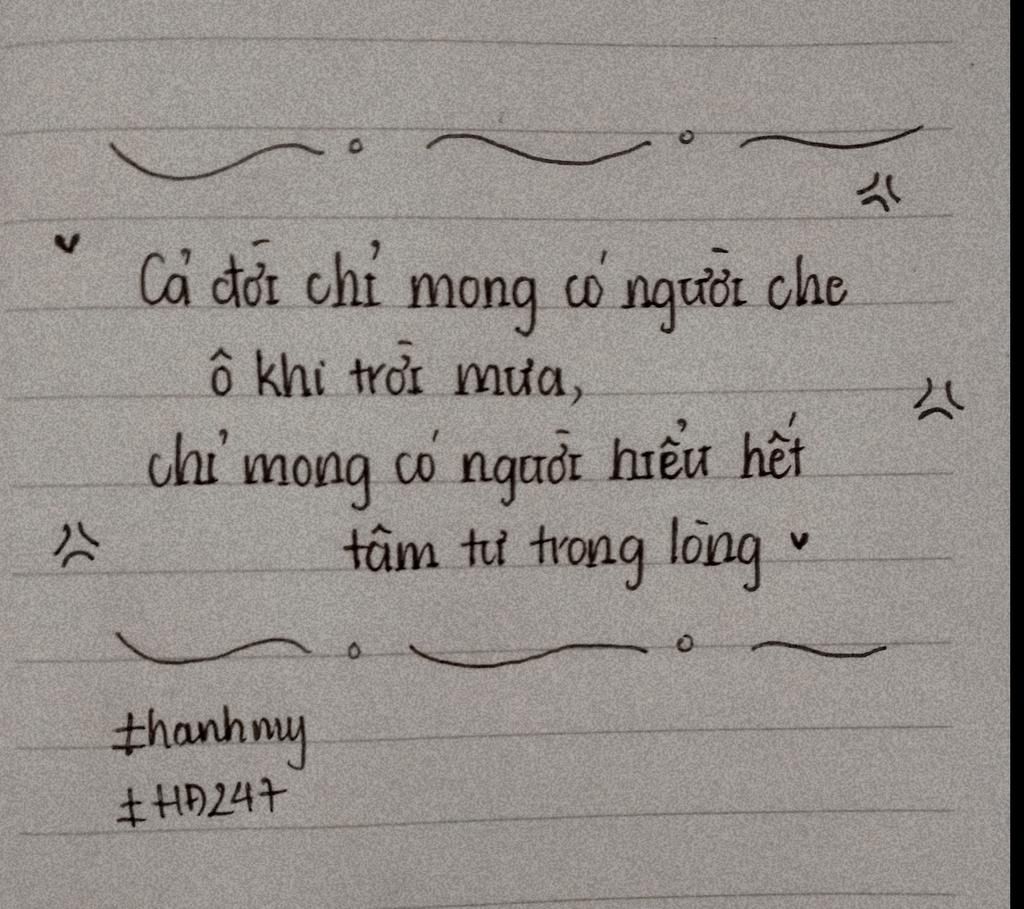 Cả đời chỉ mong có người che
ô khi trời mưa,
chỉ mong có người hiểu hết
tâm tư trong lòng
#hanhmy
#HĐ247